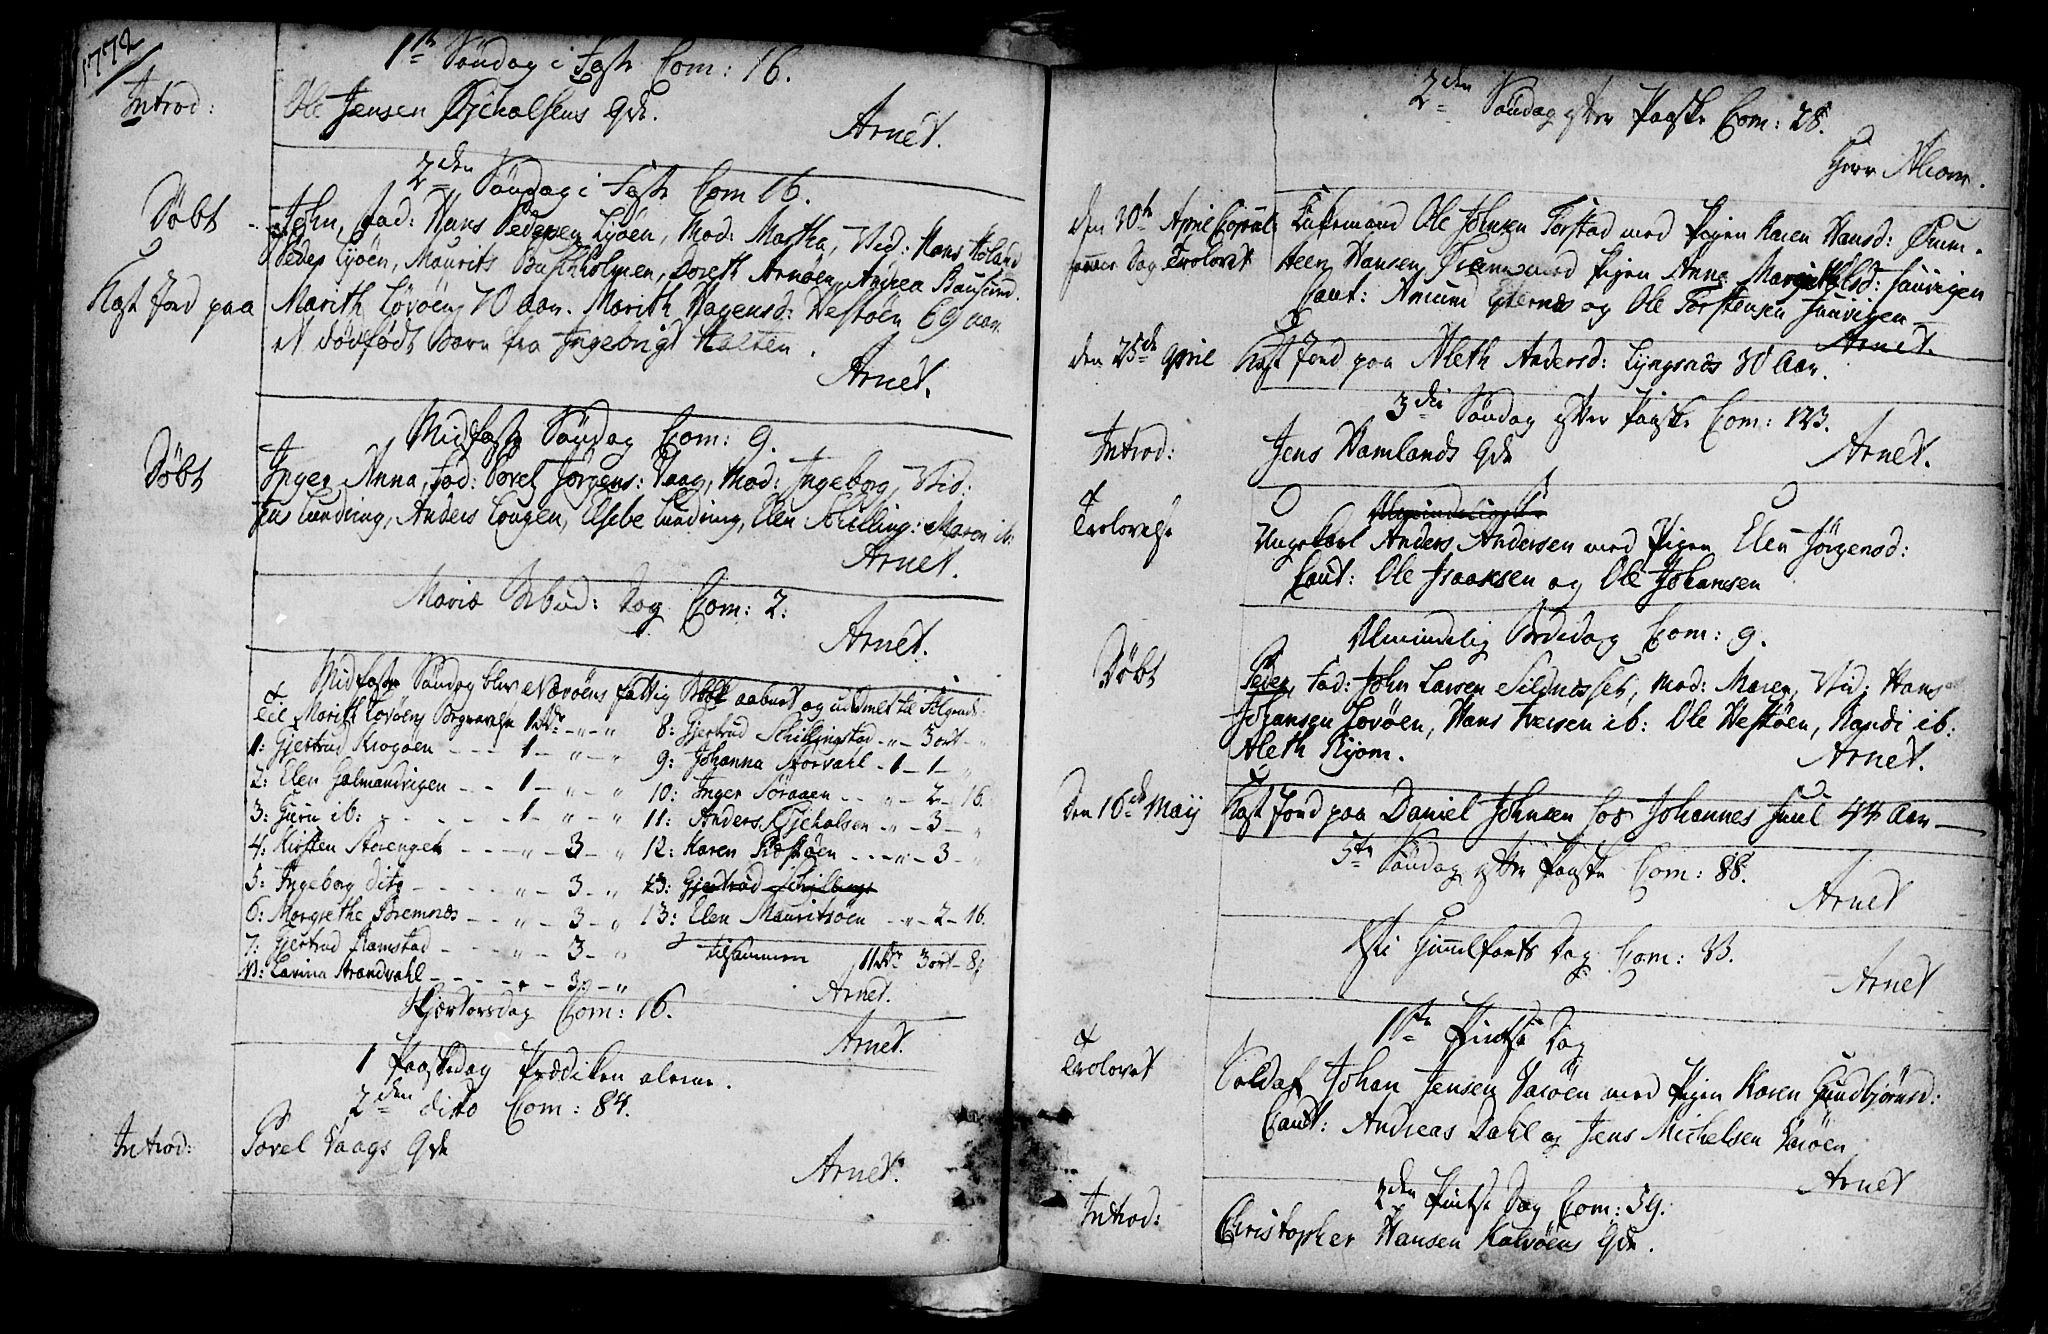 1772
1te Søndag i Faste Com: 16.
Introd: Ole Jensen
Arnet.
2den Søndag i Faste Com 16.
Døbt John, Fad: Hans Pedersen Lyøen, Mod: Martha, Vid: Hans Holand
Peder Lyøen, Maurits Buchholmen, Doreth Arnøen, Andrea Bausund.
Kast Jord paa Marith Lovøen 70 aar. Marith Hagensd: Westøen 69 aar
et dødfødt Barn fra Ingebrigt Halten.
Arnet.
Midfaste Søndag Com: 9.
Døbt Inger Anna, Fad: Povel Jørgens: Vaag, Mod: Ingeborg, Vid:
Jens Lundring, Anders Lougen, Elsebe Lundring, Elen Skilling: Maren ib:
Arnet.
Mariæ Bebud: Dag Com: 2:
Arnet.
Midfaste Søndag blev Nærøens fattig Blok aabnet og uddeelt til Følgende:
Til Marith Lovøens Begravelse 1 Rdr - „ - „
1: Gjertrud Krogøen - - - 1 - „ - „
2: Elen Galmandvigen - - - 1 - „ - „
3: Guru ib: - - - - - 1 - „ - „
4: Kirsten Storenget - - - „ - 3 - „
5: Ingeborg dito - - - - „ - 3 - „
6: Margrethe Bremnæs - - „ - 3 - „
7: Gjertrud Ramstad - - - „ - 3 - „
Lavina Strandvahl - - - - „ - 3 - „
8: Gjertrud Skillingstad - „ - 3 ort - „
9: Johanna Storvahl - 1 - 1 - „
10: Inger Søraaen - - „ - 2 - 16.
11: Anders - „ - 3 - „
12: Karen - - - „ - 3 - „
13: Gjertrud
13: Elen Mauritsøen - „ - 2 - 16.
tilsammen 11 Rdr 3 ort - 8
Arnet.
Skjærtorsdag Com: 16.
Arnet.
1 Paaskedag Prædiken alene.
2den dito Com: 84.
Introd: Povel Vaags Qde
Arnet.
2den Søndag efter Paaske Com: 28.
Herr
den 30te April Copul: Enkemand Ole Johnsen Torstad med Pigen Karen Hansd:
samme Dag Trolovet Hansen med Pigen Anna
Caut: Amund og Ole Torstensen Juuvigen
Arnet.
den 25de April Kast Jord paa Aleth Andersd: Lyngsnæs 30 Aar.
3die Søndag efter Paaske Com: 123.
Introd: Jens Hamlands Qde
Arnet.
Trolovelse Ungekarl Anders Andersen med Pigen Elen Jørgensd:
Caut: Ole Isaaksen og Ole Johansen
Almindelig Bededag Com: 9.
Døbt Peder, Fad: John Larsen Sildnesset, Mod: Maren, Vid: Hans
Johansen Lovøen, Hans Iversen ib: Ole Westøen, Randi ib:
Aleth Ryom.
Arnet.
Den 16de Maij Kast Jord paa Daniel Johnsen hos Johannes Juul 44 Aar
5te Søndag efter Paaske Com: 88.
Arnet
Christi Himmelfarts Dag Com:
Arnet
1te Pintse Dag
Trolovet Soldat Johan Jensen Varøen med Pigen Karen Gundbjørnsd:
Caut: Andreas Dahl og Jens Michelsen Varøen
Arnet
2den Pintse Dag Com: 59.
Introd: Christopher Hansen Kalvøens Qde.